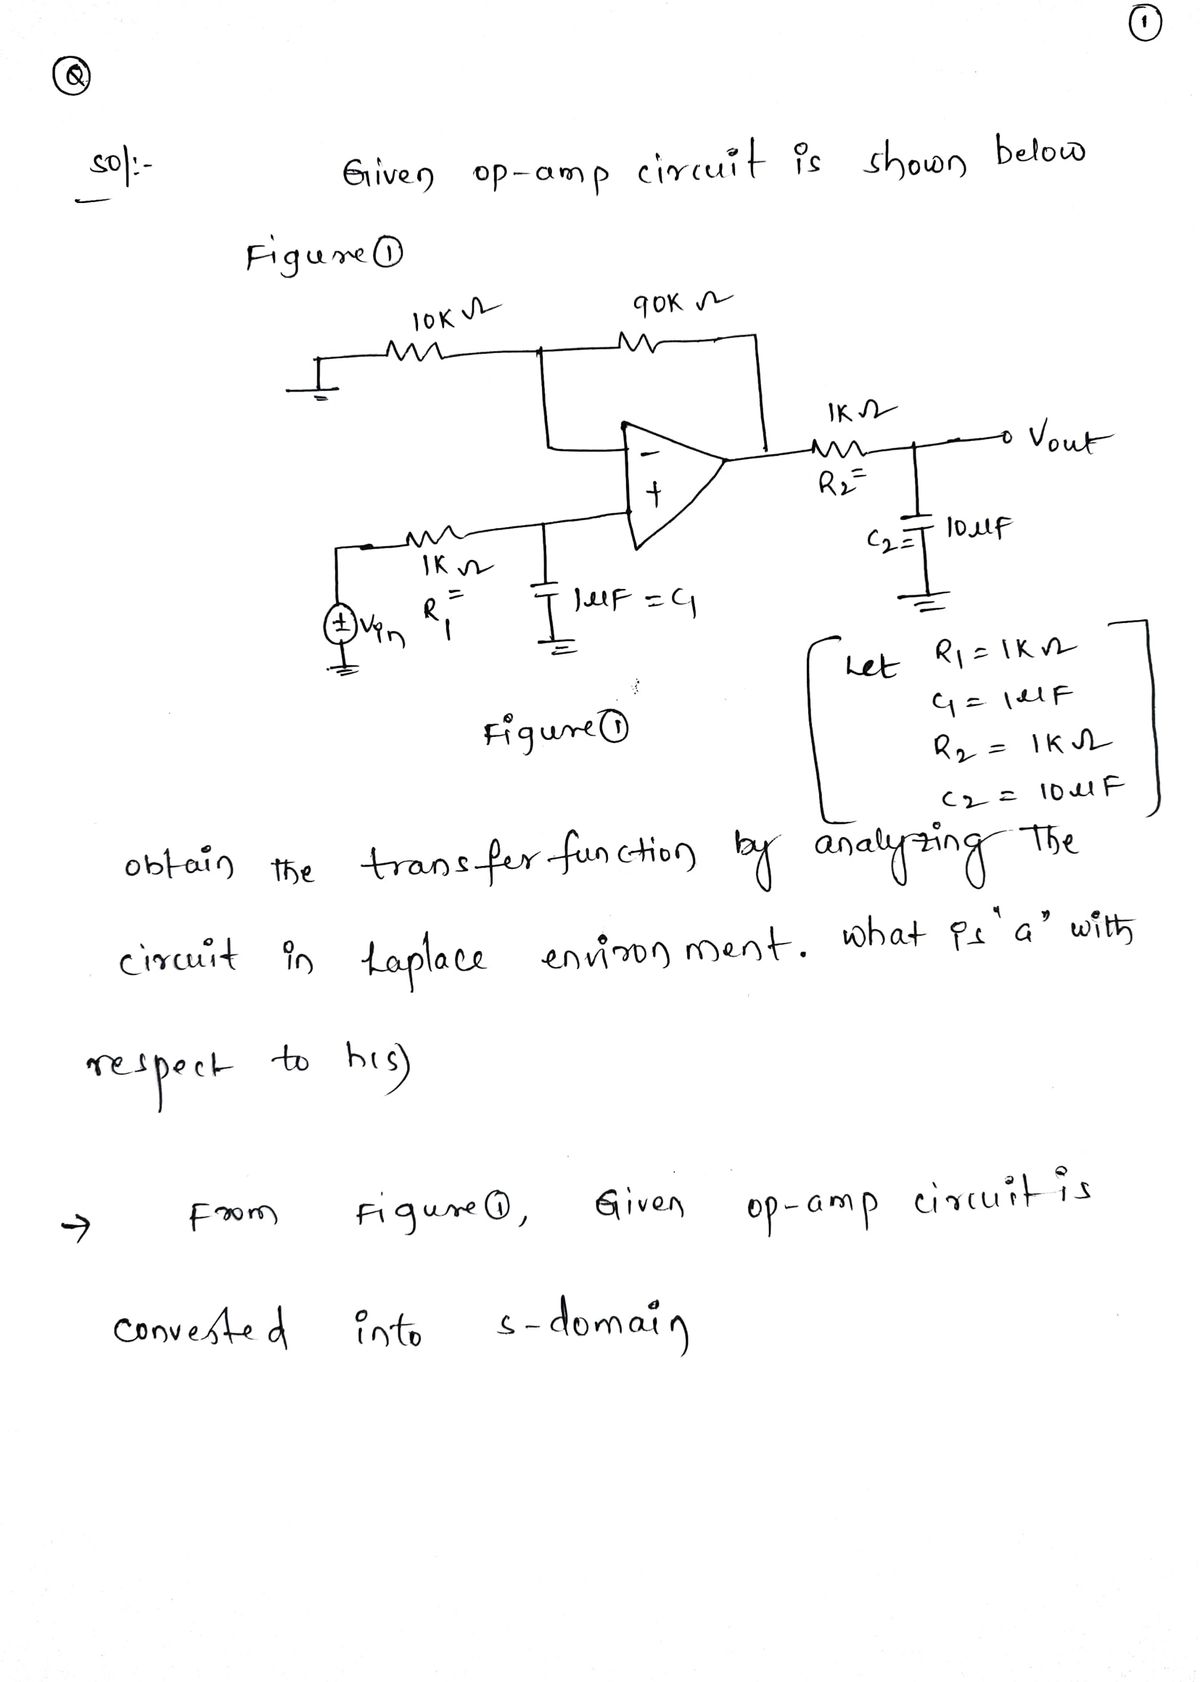 ①
Q
sol:-
Given op-amp circuit is shown below
Figure ①
10K Ω
90K Ω
1K Ω
Vout
-
+
R2=
C2=
10µF
1K Ω
R1=
1µF = C1
± Vin
Figure ①
Let R1 = 1K Ω
C1 = 1µF
R2 = 1K Ω
C2 = 10µF
obtain the transfer function by analyzing the
circuit in Laplace environment. what is "a" with
respect to h(s)
→ From Figure ①, Given op-amp circuit is
converted into s-domain